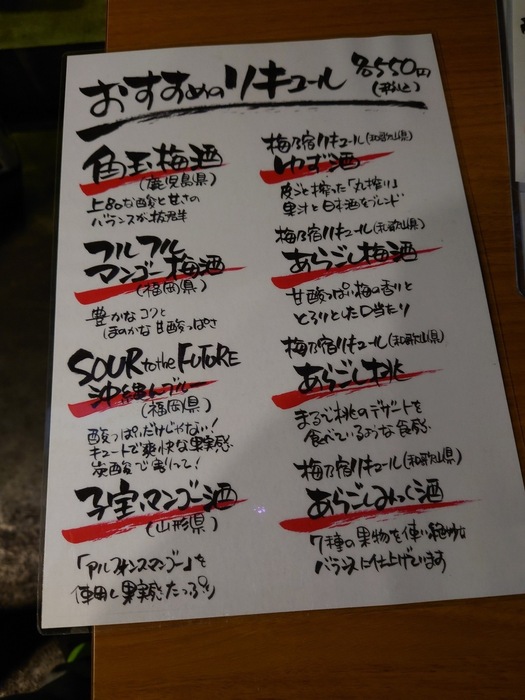 おすすめのリキュール 各550円
(税込)
角玉梅酒
(鹿児島県)
上品な酸と甘さの
バランスが抜群
フルフル
マンゴー梅酒
(福岡県)
豊かなコクと
ほのかな甘酸っぱさ
SOUR to the FUTURE
沖縄んブルー
(福岡県)
酸っぱいだけじゃない!
キュートで爽快な果実感
炭酸で割って!
子宝マンゴー酒
(山形県)
「アルフォンスマンゴー」を
使用し果実感たっぷり
梅乃宿リキュール(和歌山県)
ゆず酒
皮ごと搾った「丸搾り」
果汁と日本酒をブレンド
梅乃宿リキュール(和歌山県)
あらごし梅酒
甘酸っぱい梅の香りと
とろりとした口当たり
梅乃宿リキュール(和歌山県)
あらごし桃
まるで桃のデザートを
食べているような食感
梅乃宿リキュール(和歌山県)
あらごしみっくす酒
7種の果物を使い絶妙な
バランスに仕上げています